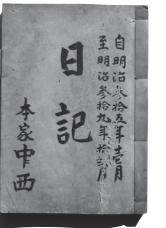 自明治参拾五年壱月
至明治参拾九年拾弐月
日記
本家中西